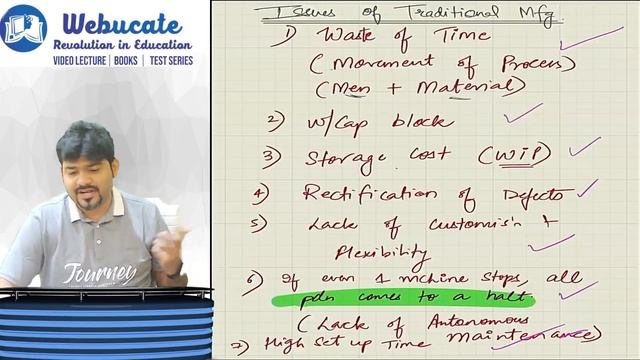 Webucate
Revolution in Education
VIDEO LECTURE | BOOKS | TEST SERIES
Issues of Traditional Mfg
1) Waste of Time
(Movement of Process)
(Men + Material)
2) W/Cap block
3) Storage cost (WIP)
4) Rectification of Defects
5) Lack of Customis'n +
Flexibility
6) If even 1 mchine stops, all
pdn comes to a halt.
(Lack of Autonomous
Maintenance)
7) High Set up Time
Journey